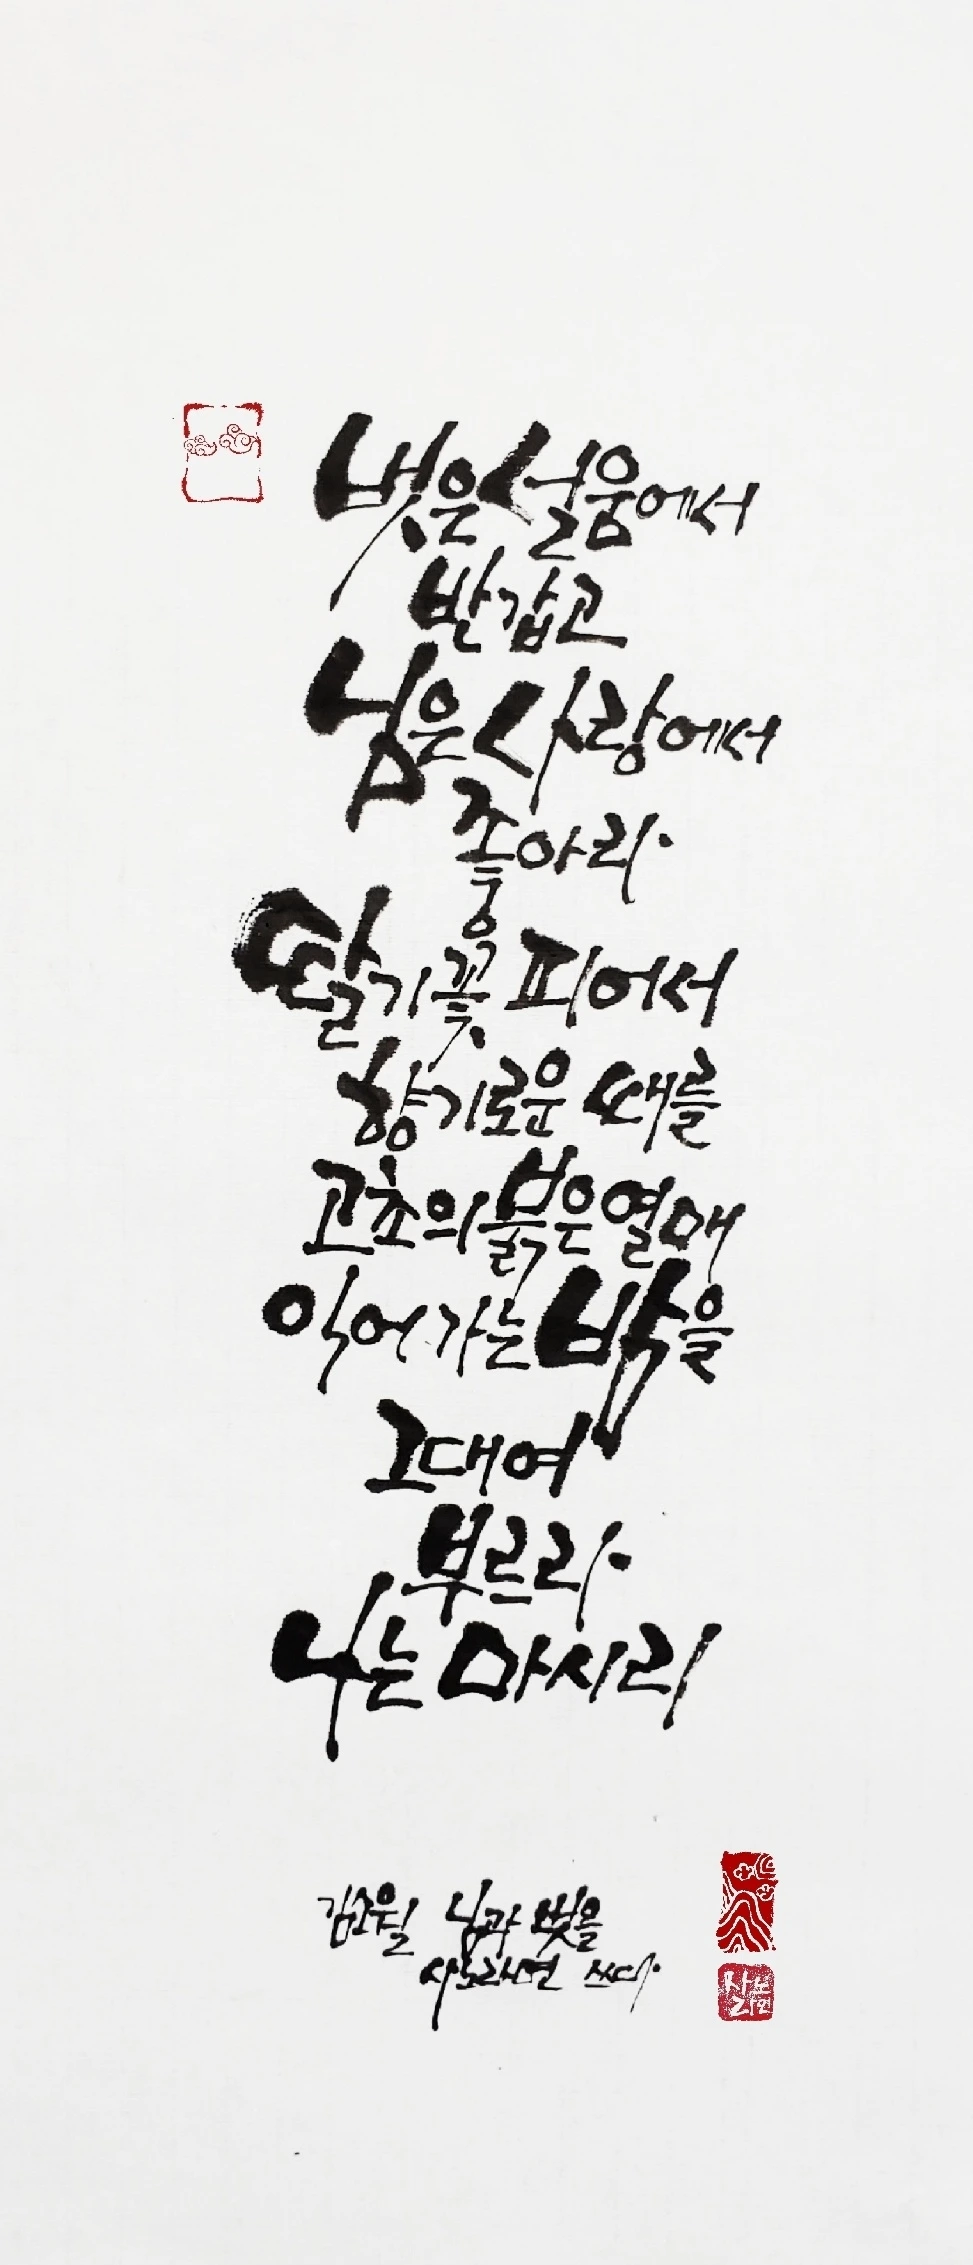 벗은 설움에서
반갑고
님은 사랑에서
좋아라.
딸기꽃 피어서
향기로운 때를
고초의 붉은 열매
익어 가는 밤을
그대여
부르라.
나는 마시리
김소월 님과 벗을
사노라면 쓰다.
사노라면